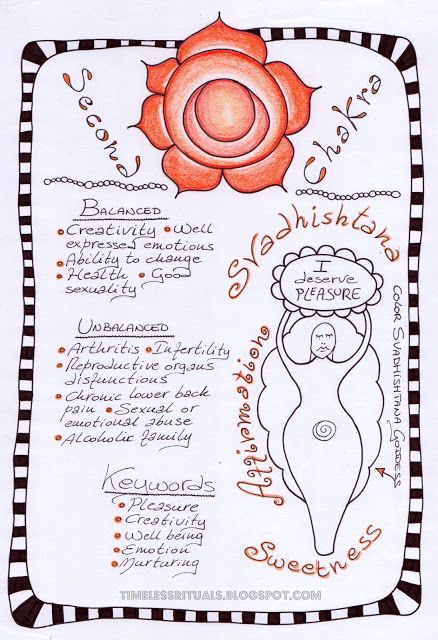 Second Chakra
BALANCED
Creativity Well
expressed emotions
Ability to change
Health Good
sexuality
UNBALANCED
Arthritis Infertility
Reproductive organs
disfunctions
Chronic lower back
pain Sexual or
emotional abuse
Alcoholic family
Keywords
Pleasure
Creativity
Well being
Emotion
Nurturing
Svadhishtana
I
deserve
PLEASURE
Affirmation
COLOR SVADHISHTANA GODDESS
Sweetness
TIMELESSRITUALS.BLOGSPOT.COM